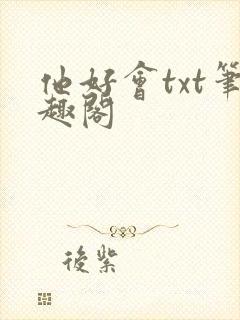 他好會txt筆
趣閣
後紫